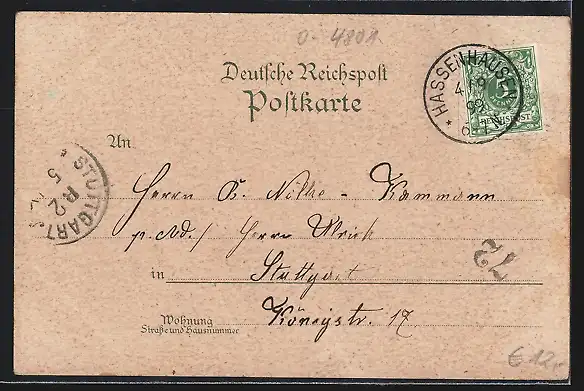 0-4801
Deutsche Reichspost
Postkarte
HASSENHAUSEN
4/9
99
REICHSPOST
An
STUTTGART
5
R2
Herrn K. Nolke - Kammann
p. Adr. / Herrn Ulrich
72
in Stuttgart
Wohnung
Straße und Hausnummer
Königstr. 17
€ 12,-